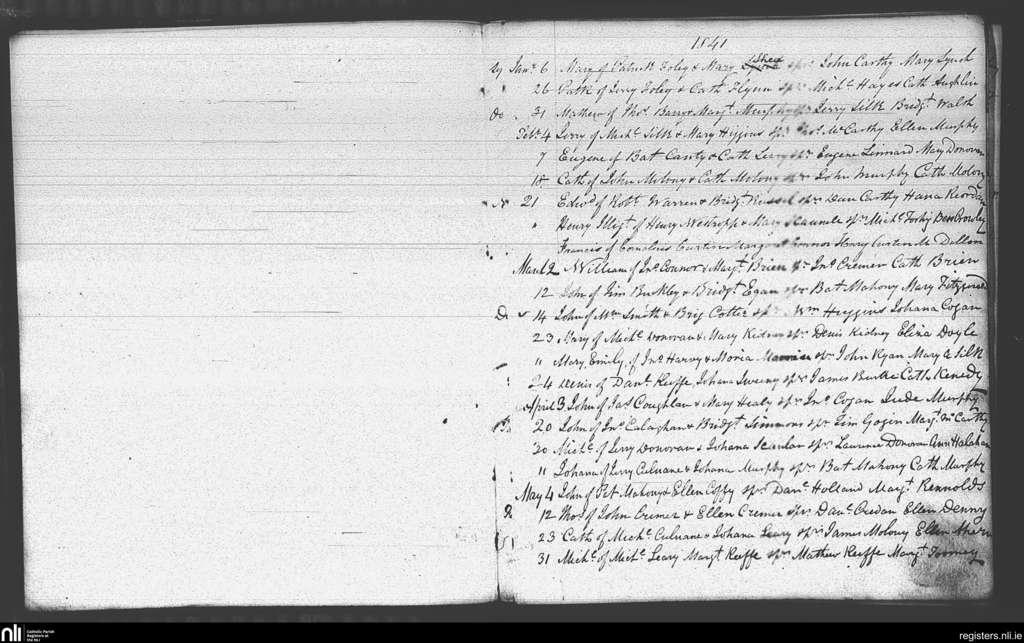 1841
Jany 6 Mary of Patrick Foley & Mary Shea sprs John Carthy Mary Lynch
26 Cath of Jerry Foley & Cath Flynn sprs Michl Hayes Cath
Do 31 Mathew of Thos Barry & Margt Murphy sprs Jerry Silk Bridgt Walsh
Feby 4 Jerry of Michl Silk & Mary Higgins sprs Thos McCarthy Ellen Murphy
7 Eugene of Bat Canty & Cath Leary sprs Eugene Linnard Mary Donovan
18 Cath of John Molony & Cath Molony sprs John Murphy Cath Molony
21 Edwd of Robt Warren & Bridgt Russel sprs Dan Carthy Hana Riordan
" Henry of Henry & Mary sprs Michl Bess Crowley
Francis of Cornelius Curtin Connor Henry Curtin M Dillon
March 2 William of Jno Connor & Margt Brien sprs Jno Cremen Cath Brien
12 John of Jim Buckley & Bridgt Egan sprs Bat Mahony Mary Fitzgerald
Do 14 John of Wm Smith & Brig Cotter sprs Wm Huggins Johana Cogan
23 Mary of Michl Donovan & Mary Kidney sprs Denis Kidney Eliza Doyle
" Mary Emily, of Jno Harvy & Moria sprs John Ryan Mary A Silk
24 Denis of Danl Keeffe, Johana Sweeny sprs James Burke Cath Kenedy
April 3 John of Jas Coughlan & Mary Healy sprs Jno Cogan Jude Murphy
20 John of Jno Calaghan & Bridgt Simmons sprs Tim Gogin Margt McCarthy
30 Michl of Jerry Donovan & Johana Scanlan sprs Laurence Donovan Ann Halahan
" Johana of Jerry Culnane & Johana Murphy sprs Bat Mahony Cath Murphy
May 4 John of Pat Mahony & Ellen Coffy sprs Danl Holland Margt Rennolds
12 Thos of John Cremer & Ellen Cremer sprs Danl Credan Ellen Denny
23 Cath of Michl Culnane & Johana Leary sprs James Molony Ellen Ahern
31 Michl of Michl Leary Margt Keeffe sprs Mathew Keeffe Margt Toomey
nli Catholic Parish Registers at the NLI
registers.nli.ie